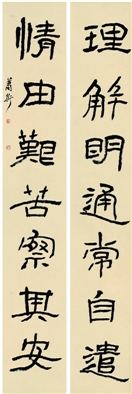 理解明通常自遣
情由艱苦察其安
蕭劳